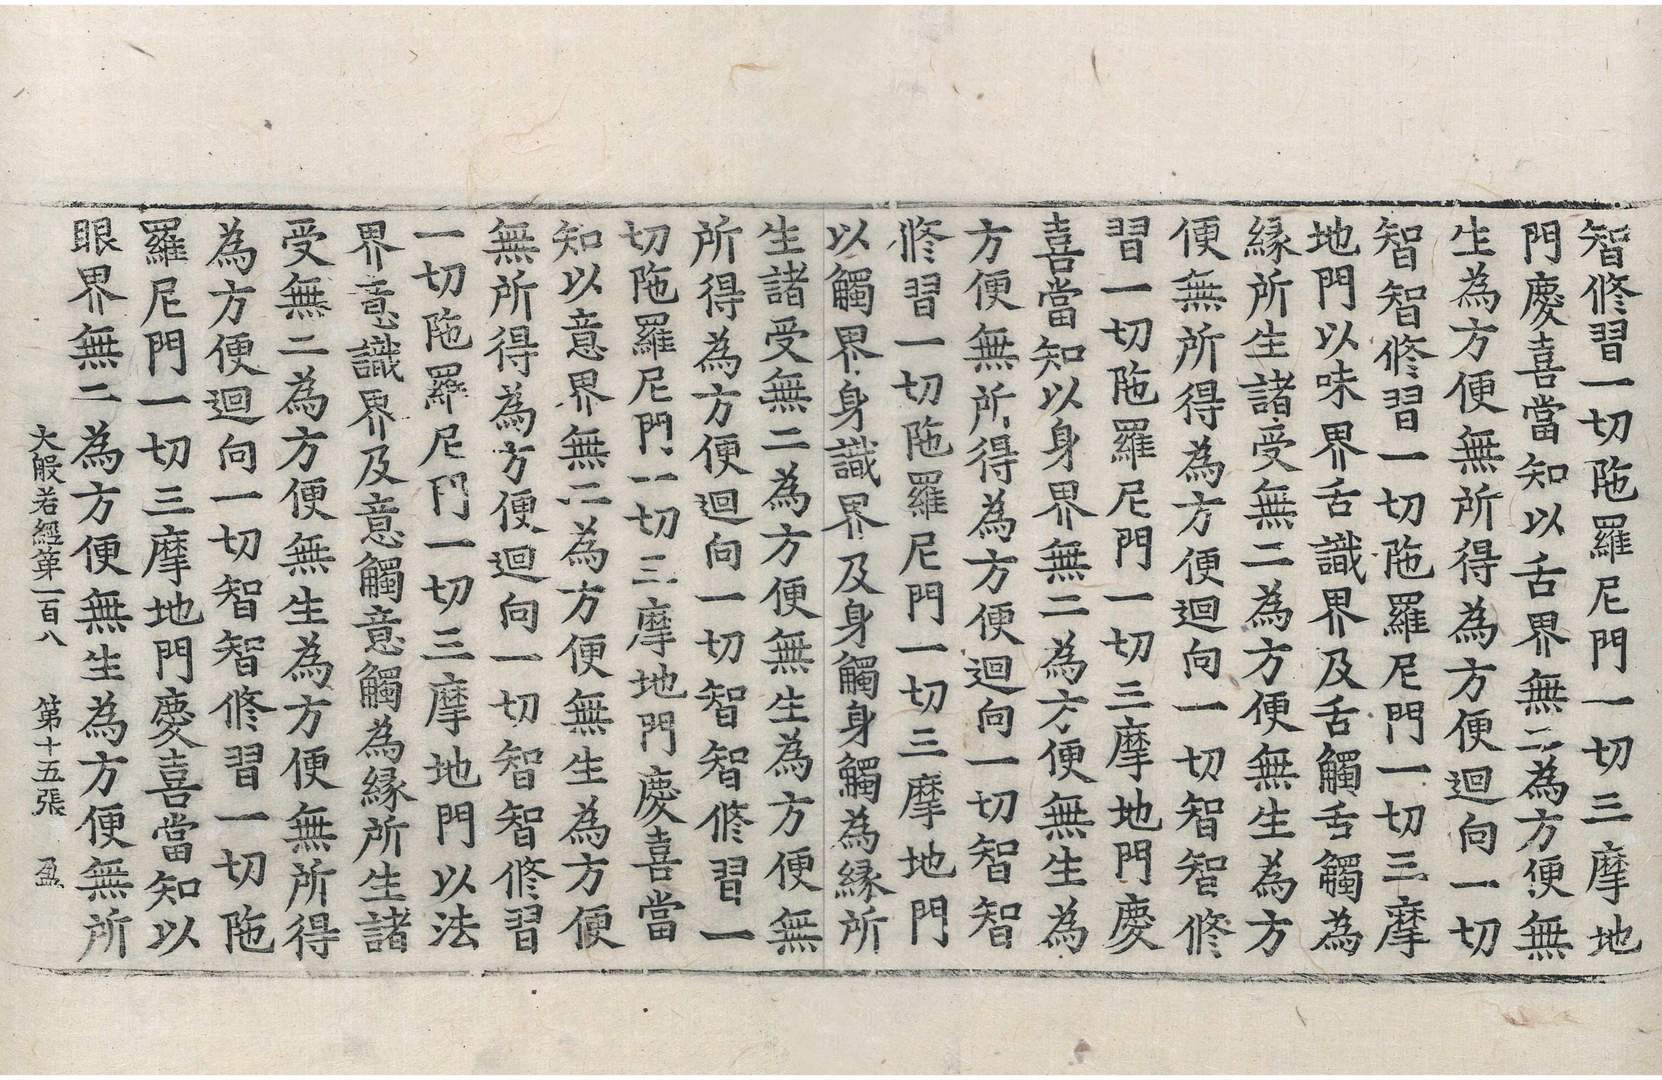 智修習一切陁羅尼門一切三摩地
門慶喜當知以舌界無二為方便無
生為方便無所得為方便迴向一切
智智修習一切陁羅尼門一切三摩
地門以味界舌識界及舌觸舌觸為
緣所生諸受無二為方便無生為方
便無所得為方便迴向一切智智修
習一切陁羅尼門一切三摩地門慶
喜當知以身界無二為方便無生為
方便無所得為方便迴向一切智智
修習一切陁羅尼門一切三摩地門
以觸界身識界及身觸身觸為緣所
生諸受無二為方便無生為方便無
所得為方便迴向一切智智修習一
切陁羅尼門一切三摩地門慶喜當
知以意界無二為方便無生為方便
無所得為方便迴向一切智智修習
一切陁羅尼門一切三摩地門以法
界意識界及意觸意觸為緣所生諸
受無二為方便無生為方便無所得
為方便迴向一切智智修習一切陁
羅尼門一切三摩地門慶喜當知以
眼界無二為方便無生為方便無所
大般若經第一百八 第十五張 盈